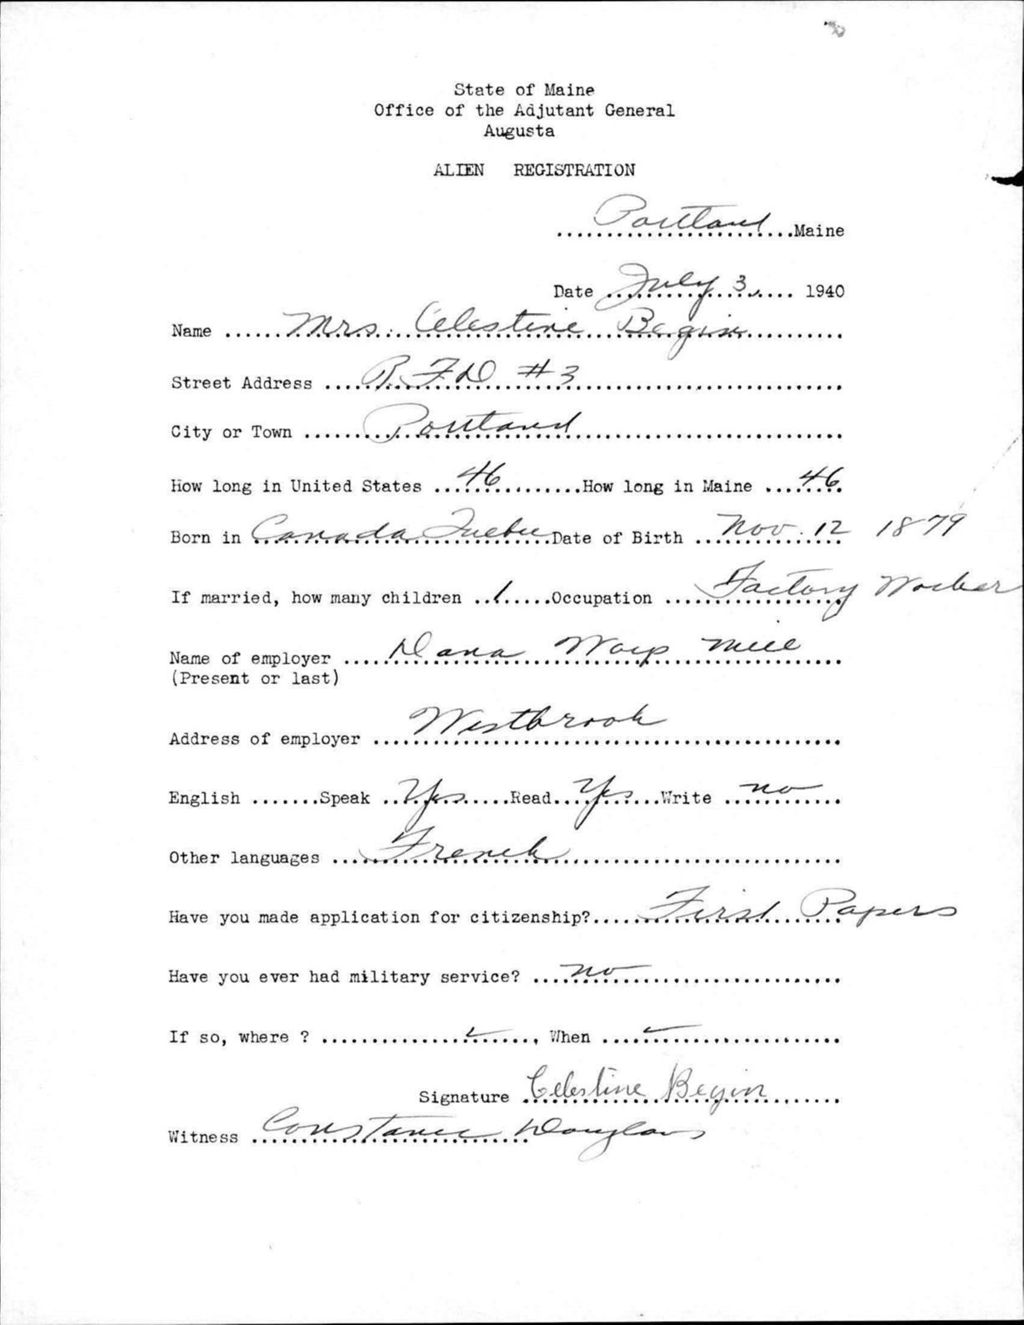 State of Maine
Office of the Adjutant General
Augusta
ALIEN REGISTRATION
Portland Maine
Date July 3, 1940
Name Mrs. Celestine Begin
Street Address R.F.D #3
City or Town Portland
How long in United States 46 How long in Maine 46
Born in Canada Quebec Date of Birth Nov. 12 1879
If married, how many children 1 Occupation Factory Worker
Name of employer Dana Warp Mill
(Present or last)
Address of employer Westbrook
English Speak Yes Read Yes Write no
Other languages French
Have you made application for citizenship? First Papers
Have you ever had military service? no
If so, where ? , When
Signature Celestine Begin
Witness Constance Douglass